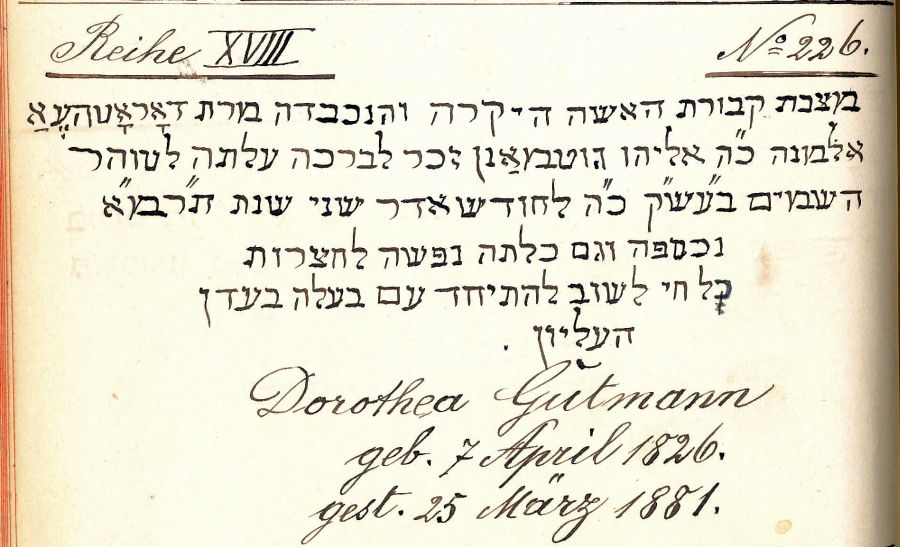 Reihe XVIII No 226.
מצבת קבורת האשה היקרה והנכבדה מרת דאָראָטהעאַ
אלמנה כ"ה אליהו גוטמאַנן זכר לברכה עלתה לטוהר
השמים בע"ש"ק כ"ה לחודש אדר שני שנת ת"רמ"א
נכספה וגם כלתה נפשה לחצרות
כל חי לשוב להתיחד עם בעלה בעדן
העליון .
Dorothea Gutmann
geb. 7 April 1826.
gest. 25 März 1881.